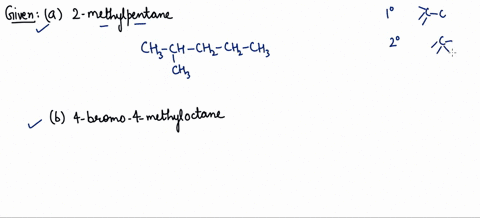 Given: (a) 2-methylpentane
CH3-CH-CH2-CH2-CH3
CH3
(b) 4-bromo-4-methyloctane
1° C-C
2° C